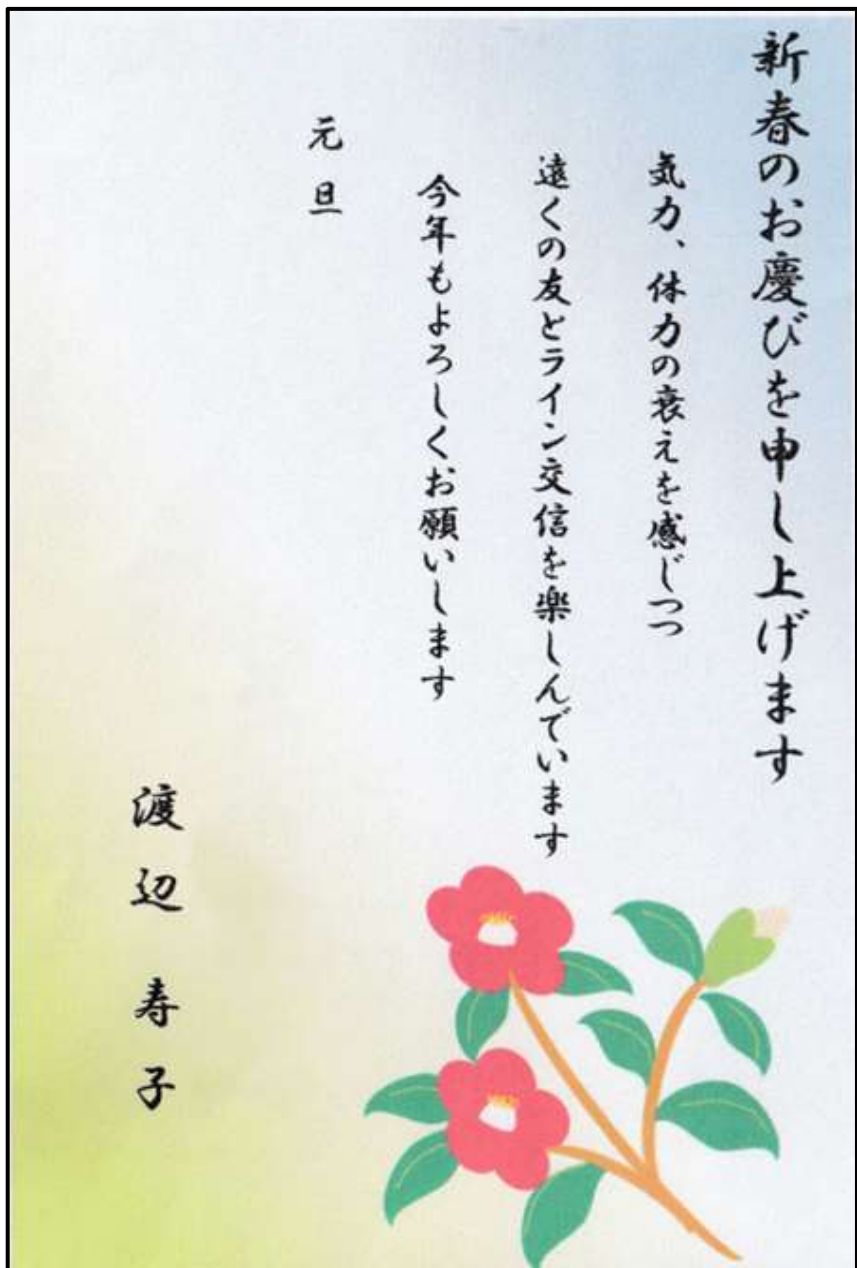 新春のお慶びを申し上げます
気力、体力の衰えを感じつつ
遠くの友とライン交信を楽しんでいます
今年もよろしくお願いします
元旦
渡辺 寿子